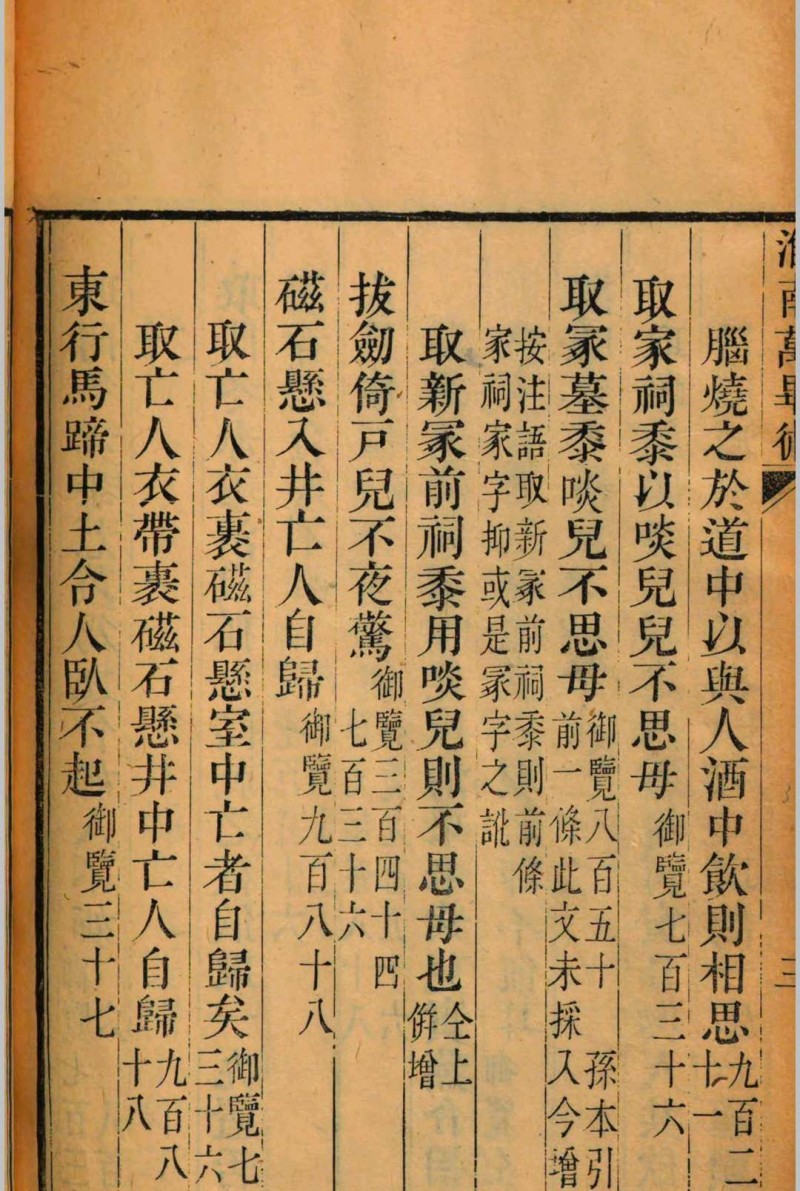 淮南萬畢術
三
腦燒之於道中以與人酒中飲則相思九百二十一
取家祠黍以啖兒兒不思母御覽七百三十六
取冢墓黍啖兒不思母御覽八百五十 孫本引前一條此文未採入今增
按注語取新冢前祠黍則前條家祠家字抑或是冢字之訛
取新冢前祠黍用啖兒則不思母也仝上併增
拔劒倚戸兒不夜驚御覽三百四十四七百三十六
磁石懸入井亡人自歸御覽九百八十八
取亡人衣裹磁石懸室中亡者自歸矣御覽七三十六
取亡人衣帶裹磁石懸井中亡人自歸九百八十八
東行馬蹄中土令人臥不起御覽三十七